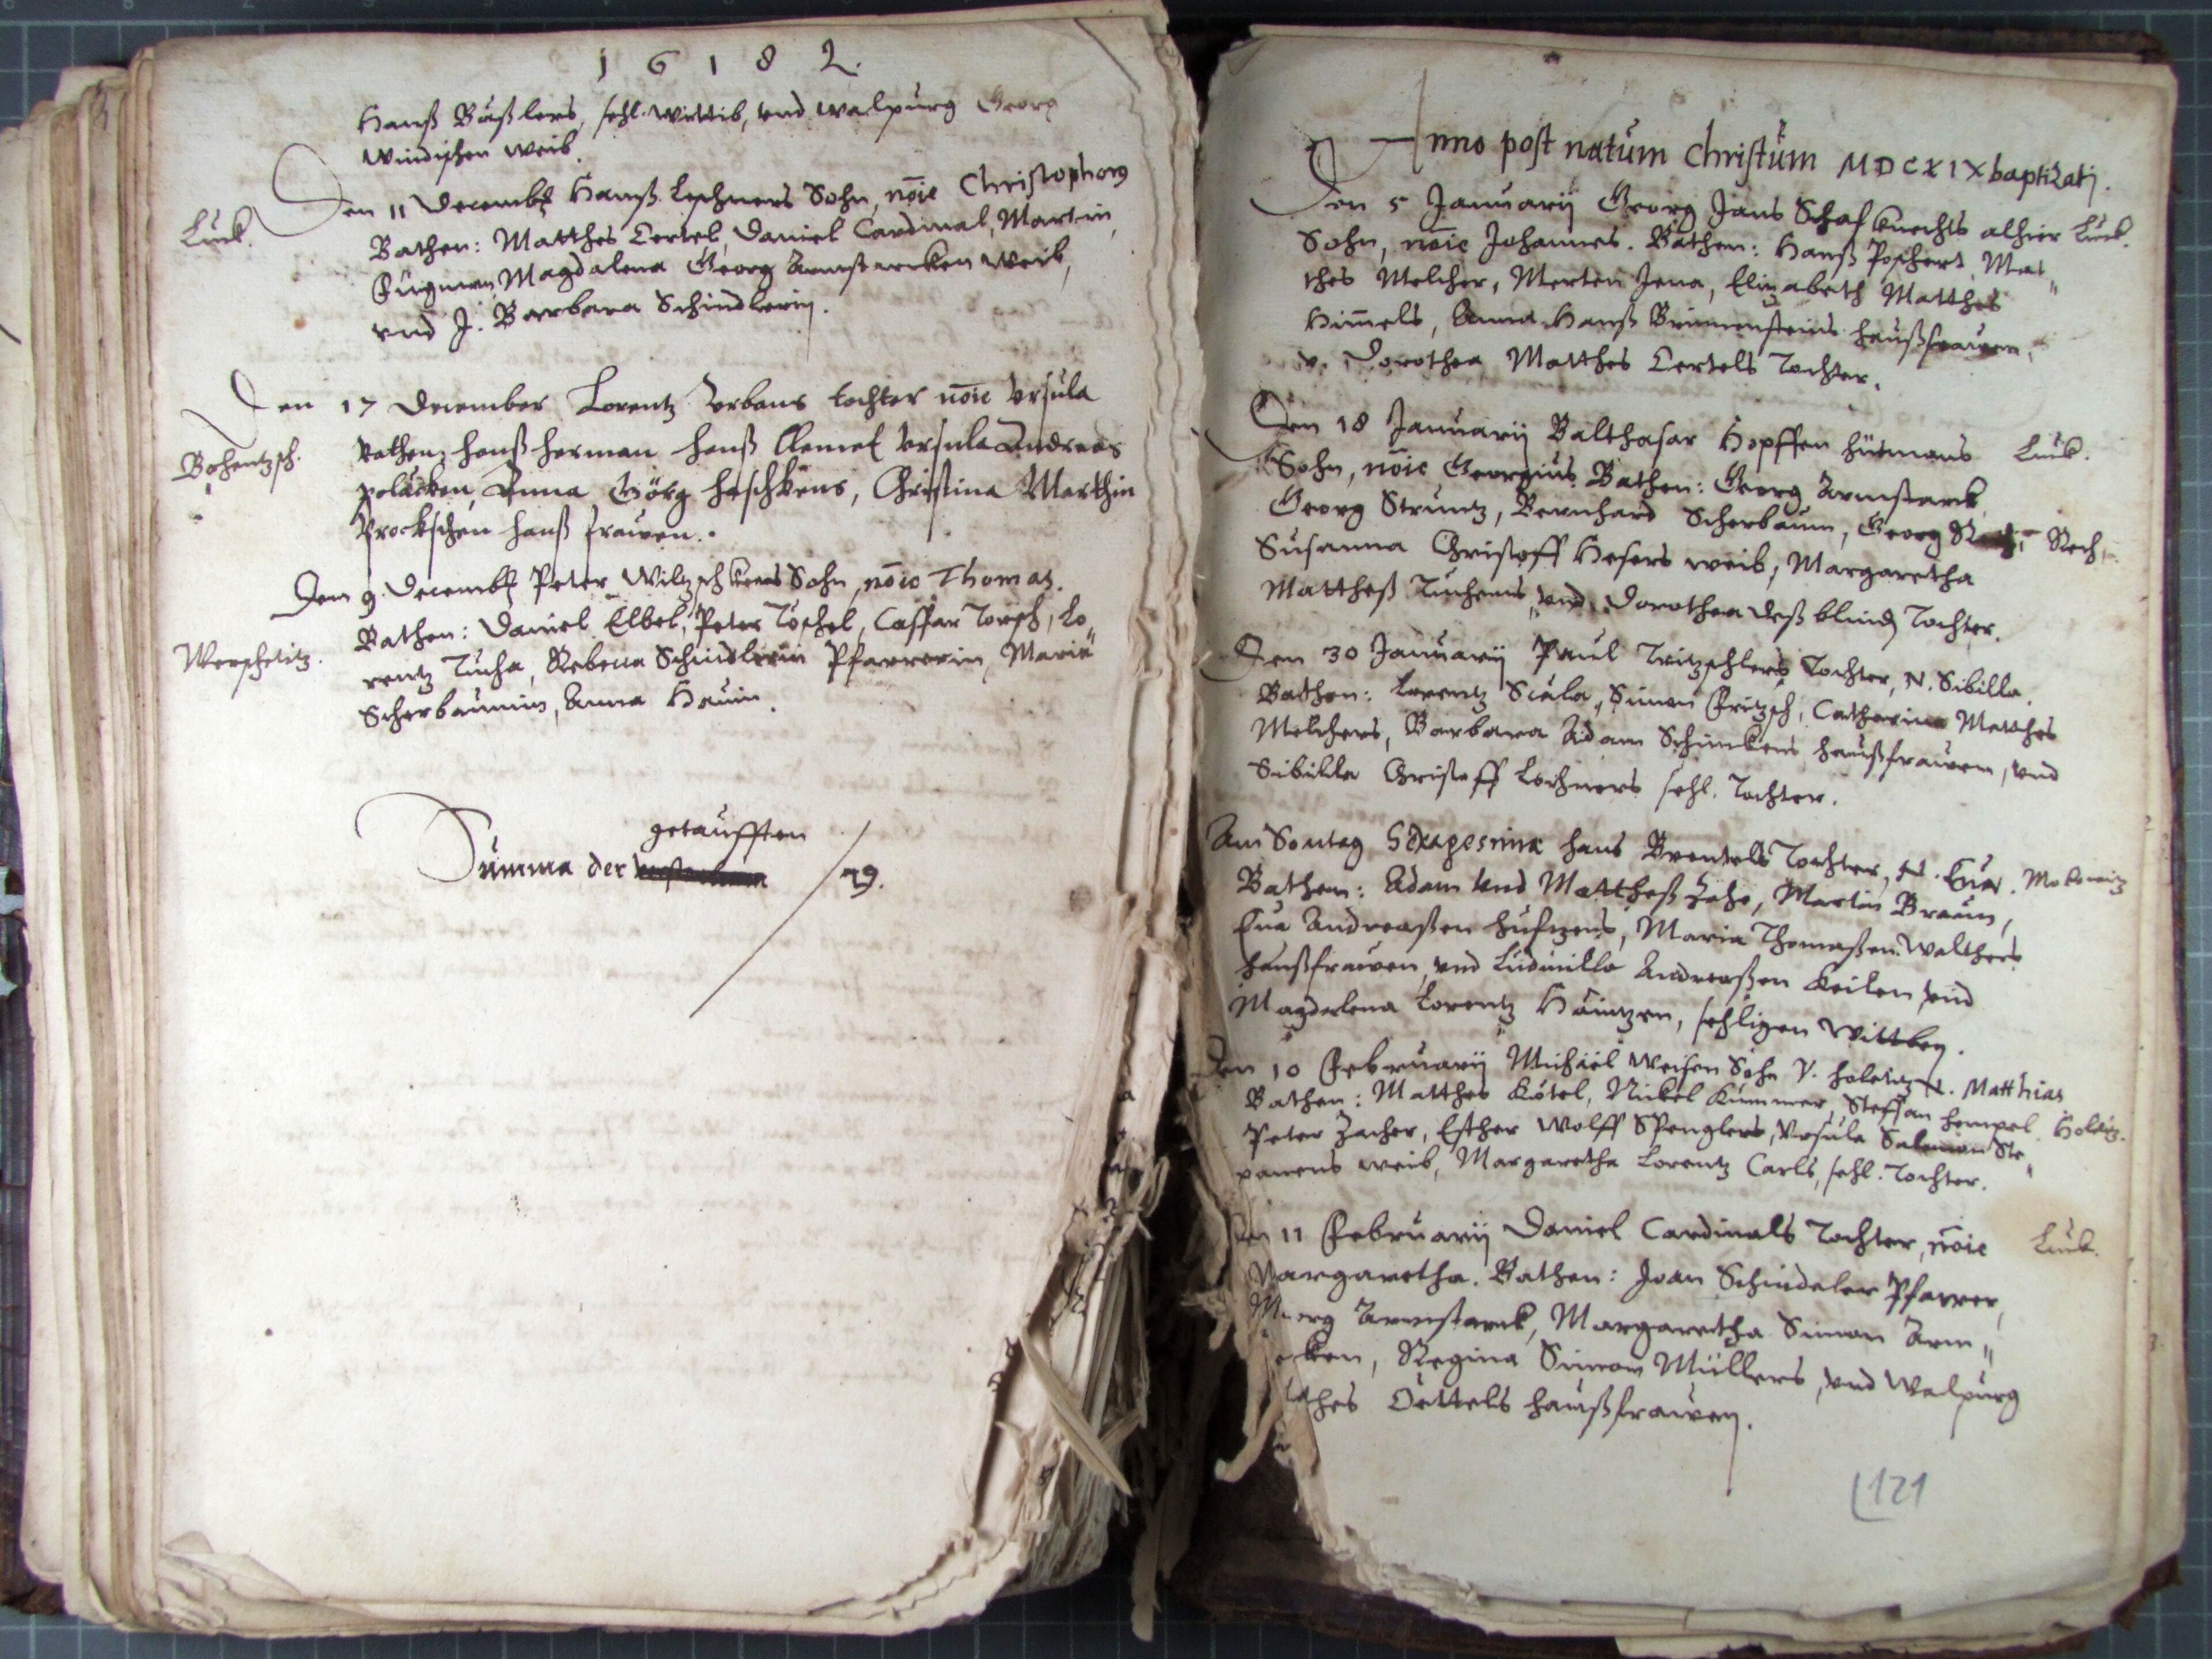 1618
Hanß Bäßlers, sehl. Wittib, vnd Walpurg Georg
Windischen weib.
Den 11 Decemb. Hanß Leschners Sohn, nöie Christophorg
Luck.
Bathen: Matthes Oertel, Daniel Cardinal, Martin
Magdalena Georg Armstercken Weib,
vnd J. Barbara Schindlerin.
Den 17 December Lorentz Vrbans tochter nöie Vrsula
Bohentzsch.
Pathen, hanß herman hanß Clemet Vrsula Andreas
polacken, Anna Görg haschkens, Christina Marthin
Prockschen hauß frawen.
Den 9. Decemb. Peter Wiltzschkens Sohn, nöie Thomas.
Bathen: Daniel Elbel, Peter Töschel, Caspar Torsch, Lo,,
Werschetitz.
rentz Tucha, Rebecca Schindlerin Pfarrerin, Maria
Scherbaumin, Anna Hauin.
getaufften
Summa der 79.
Anno post natum Christum MDCXIX baptizati.
Den 5 Januarij Georg Jans Schafknechts alhier Luck.
Sohn, nöie Johannes. Bathen: Hanß Poschert, Mat,,
thes Melcher, Merten Jena, Elizabeth Matthes
Himmels, Anna Hanß Brimensteins haußfrawen,
v. Dorothea Matthes Oertels Tochter.
Den 18 Januarij Balthasar Hopffen hütmans Luck.
Sohn, nöie Georgius. Bathen: Georg Armstarck,
Georg Struntz, Bernhard Scherbaum, Georg Rech,
Susanna Christoff Hesers weib, Margaretha
Mattheß Tuchens, vnd Dorothea deß blind Tochter.
Den 30 Januarij Paul Tritzschlers Tochter, N. Sibilla.
Bathen: Lorentz Sicula, Simon Fritzsch, Catharina Matthes
Melchers, Barbara Adam Schimckens haußfrawen, vnd
Sibilla Christoff Lochners sehl. Tochter.
Am Sontag Sexagesima hans Brentels Tochter, N. Eua. Mokowitz
Bathen: Adam vnd Mattheß Hehe, Martin Braun,
Eua Andreaßen Hufzens, Maria Thomaßen Walthers
haußfrawen, vnd Ludmilla Andreaßen Keilen vnd
Magdalena Lorentz Häintzen, sehligen Wittben.
Den 10 Februarij Michäel Weisen Sohn V. holeitz N. Matthias
Bathen: Matthes Kötel, Nickel Kummer, Steffan hempel, Holeitz.
Peter Zacher, Esther Wolff Spenglers, Vrsula Saloman Ste,,
panens weib, Margaretha Lorentz Carls, sehl. Tochter.
Den 11 Februarij Daniel Cardinals Tochter, nöie Luck.
Margaretha. Bathen: Joan Schindeler Pfarrer,
Armstarck, Margaretha Simon Arm,,
cken, Regina Simon Müllers, vnd Walpurg
thes Oettels haußfrawen.
121